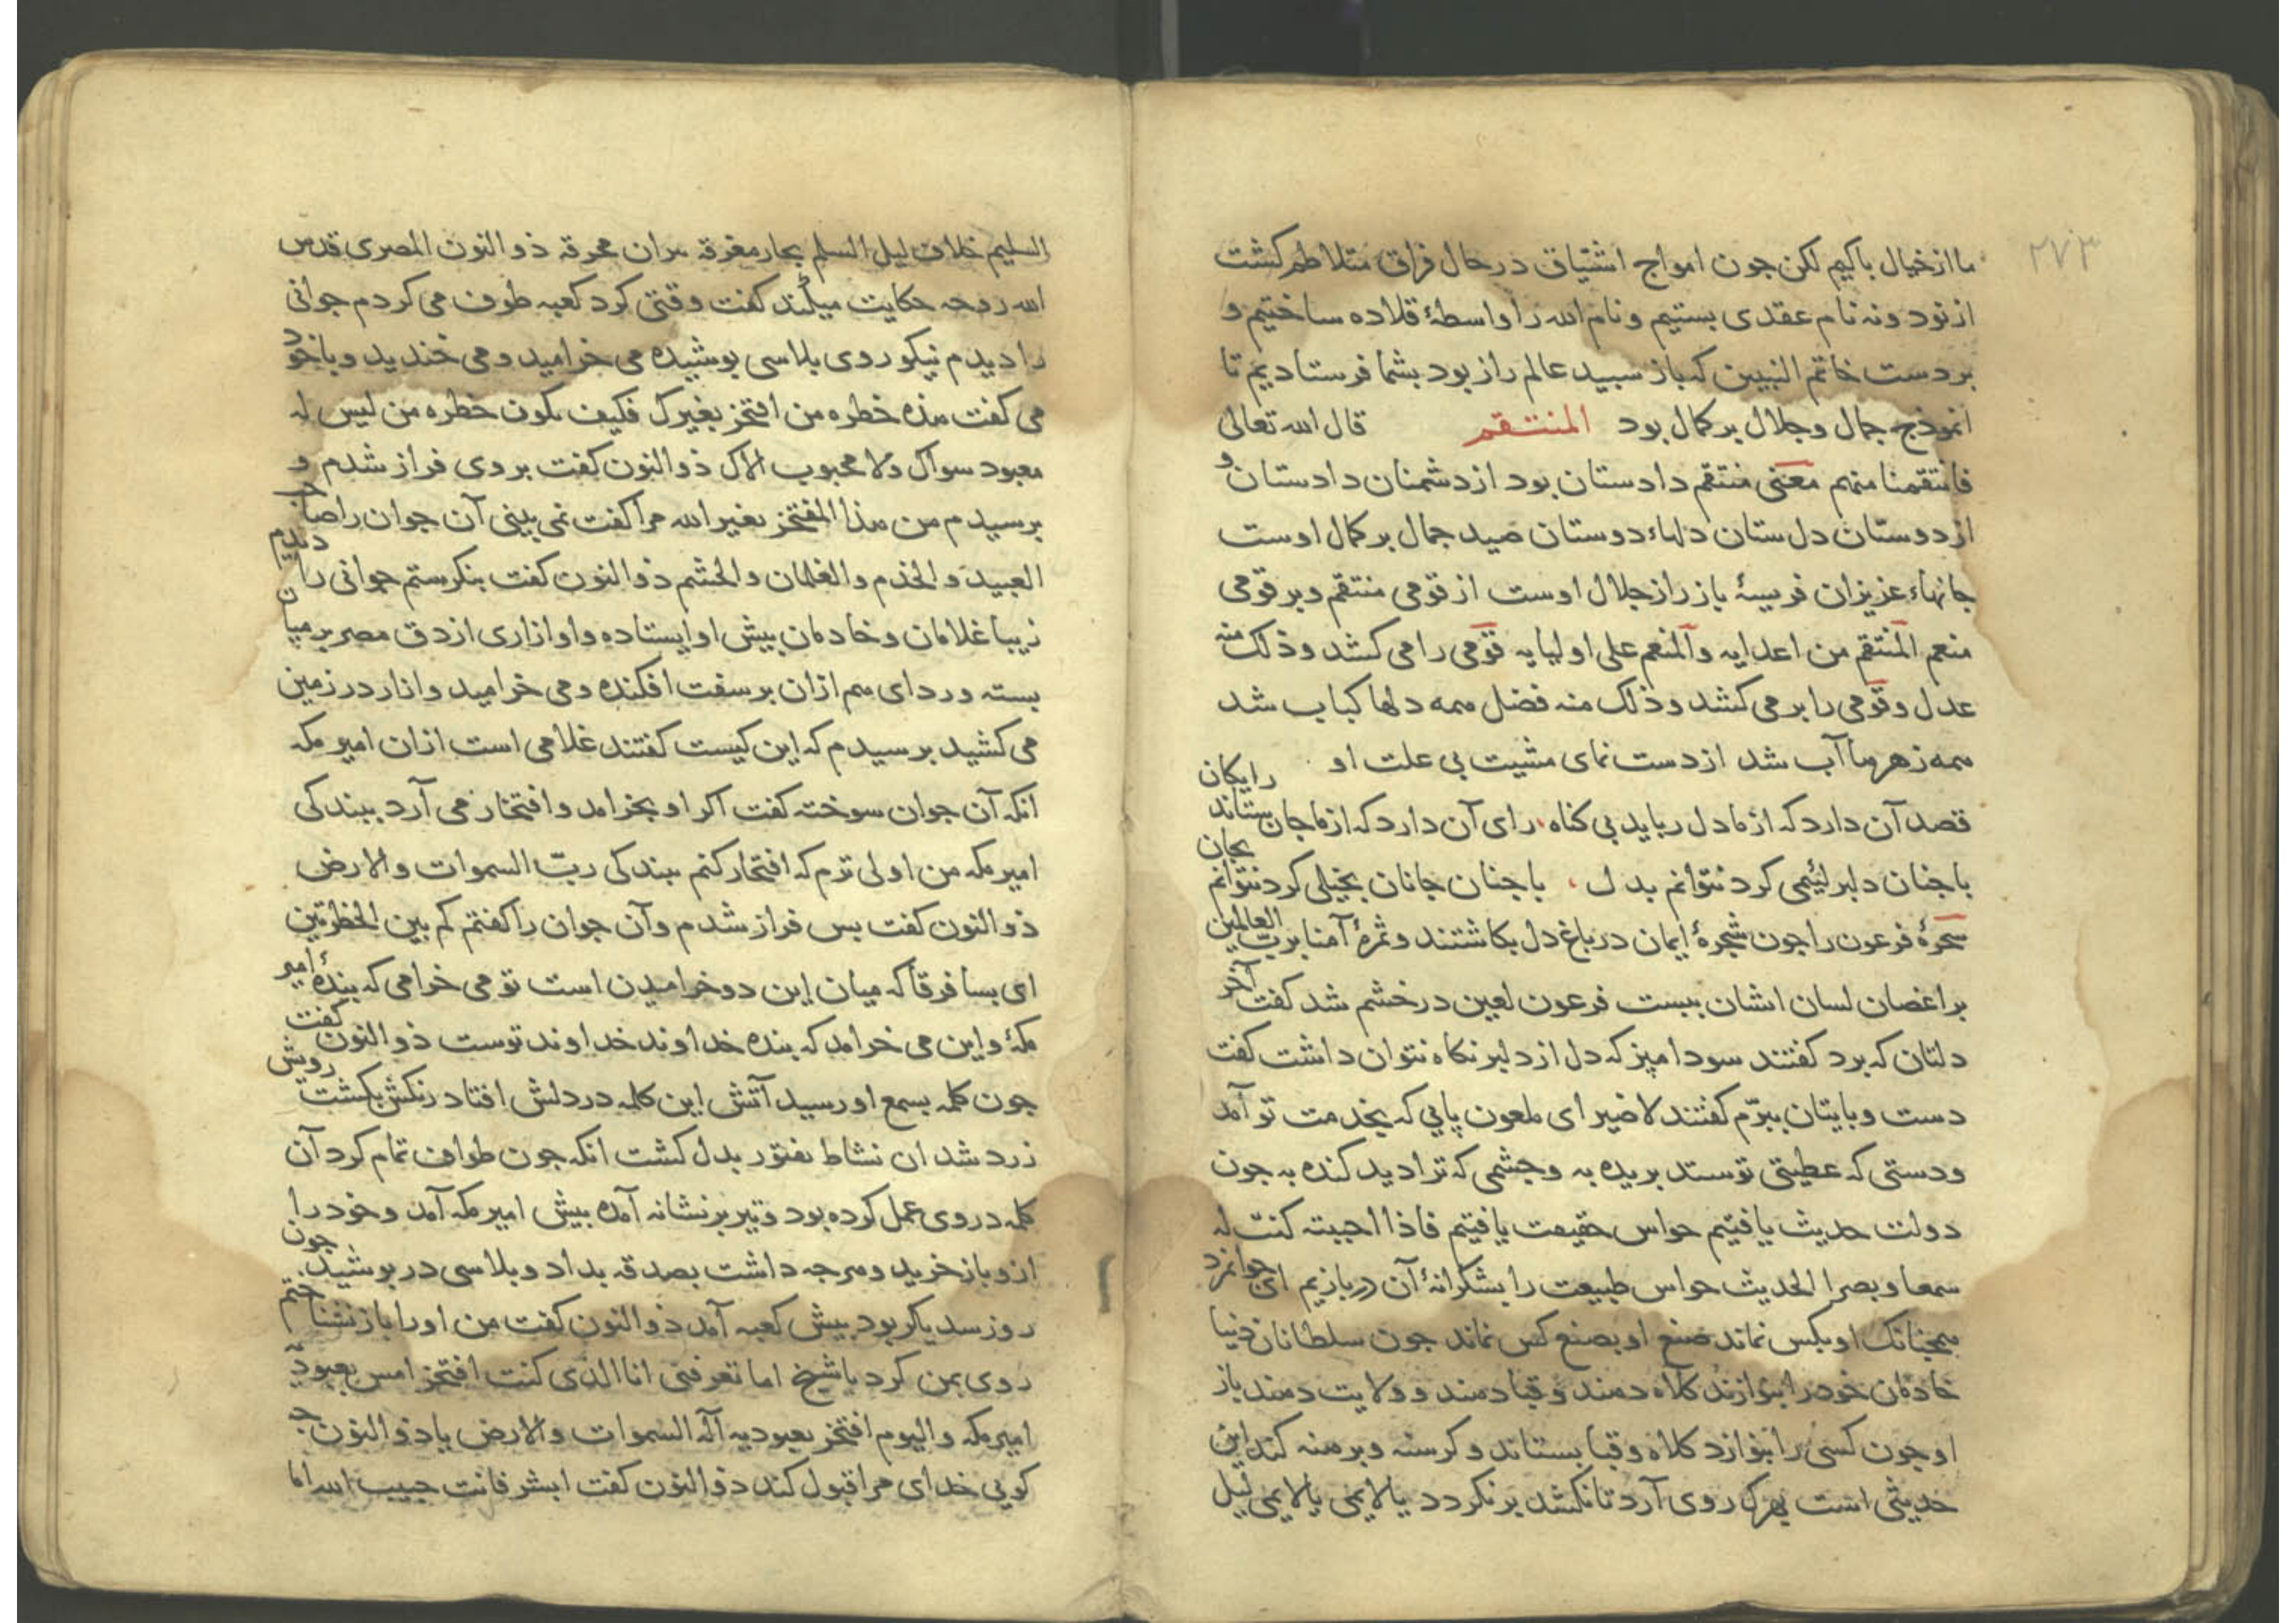 ۲۷۳
ما از خیال باکیم لکن جون امواج اشتیاق در حال فراق متلاطم کشت
از نود و نه نام عقدی بستیم و نام الله را واسطهٔ قلاده ساختیم و
بر دست خاتم النبیین که باز سبید عالم راز بود بشما فرستادیم تا
انموذج جمال و جلال بر کمال بود المنتقم قال الله تعالی
فانتقمنا منهم معنی منتقم دادستان بود از دشمنان دادستان و
از دوستان دل ستان دلهاء دوستان صید جمال بر کمال اوست
جانهاء عزیزان فریسهٔ باز راز جلال اوست از قومی منتقم و بر قومی
منعم المنتقم من اعدایه و المنعم علی اولیایه قومی را می کشد و ذلک منه
عدل و قومی را بر می کشد و ذلک منه فضل همه دلها کباب شد
همه زهرها آب شد از دست نمای مشیت بی علت او
قصد آن دارد که از ما دل رباید بی کناه رای آن دارد که از ما جان بستاند رایکان
با جنان دلبر لئیمی کرد نتوانم بدل با جنان جانان بخیلی کرد نتوانم بجان
سحرهٔ فرعون را جون شجرهٔ ایمان در باغ دل بکاشتند و ثمرهٔ آمنا برب العالمین
بر اغصان لسان ایشان ببست فرعون لعین در خشم شد کفت آخر
دلتان که برد کفتند سودا مپز که دل از دلبر نکاه نتوان داشت کفت
دست و بایتان ببرّم کفتند لا ضیر ای ملعون پایی که بخدمت تو آمد
و دستی که عطیتی تو ستد بریده به و جشمی که ترا دید کنده به جون
دولت حدیث یافتیم حواس حقیقت یافتیم فاذا احببته کنت له
سمعا و بصرا الحدیث حواس طبیعت را بشکرانهٔ آن دربازیم ای جوانمرد
همجنانک او بکس نماند صنع او بصنع کس نماند جون سلطانان دنیا
خادمان خود را بنوازند کلاه دهند و قبا دهند و ولایت دهند باز
او جون کسی را بنوازد کلاه و قبا بستاند و کرسنه و برهنه کند این
حدیثی است بهرک روی آرد تا نکشد برنکردد یا لایمی یا لایمی لیل
السلیم خلاف لیل السلم بحار مغرقه نیران محرقه ذوالنون المصری قدس
الله روحه حکایت میکند کفت وقتی کرد کعبه طوف می کردم جوانی
را دیدم نیکو روی بلاسی بوشیده می خرامید و می خندید و با خود
می کفت هذه خطره من افتخر بغیرک فکیف یکون خطره من لیس له
معبود سواک و لا محبوب الاک ذوالنون کفت بر وی فراز شدم و
برسیدم من هذا المفتخر بغیر الله مرا کفت نمی بینی آن جوان را صاحب
العبید و الخدم و الغلمان و الحشم ذوالنون کفت بنکرستم جوانی را دیدم
زیبا غلامان و خادمان بیش او ایستاده و او ازاری از دق مصر بر میان
بسته و ردای هم ازان بر سفت افکنده و می خرامید و ازار در زمین
می کشید برسیدم که این کیست کفتند غلامی است ازان امیر مکه
انکه آن جوان سوخته کفت اکر او بخرامد و افتخار می آرد ببندکی
امیر مکه من اولی ترم که افتخار کنم ببندکی ربّ السموات والارض
ذوالنون کفت بس فراز شدم و آن جوان را کفتم کم بین الخطرتین
ای بسا فرقا که میان این دو خرامیدن است تو می خرامی که بندهٔ امیر
مکهٔ و این می خرامد که بنده خداوند خداوند توست ذوالنون کفت
جون کلمه بسمع او رسید آتش این کلمه در دلش افتاد رنکش بکشت رویش
زرد شد ان نشاط بفتور بدل کشت انکه جون طواف تمام کرد آن
کلمه در وی عمل کرده بود و تیر بر نشانه آمده بیش امیر مکه آمد و خود را
ازو باز خرید و هرجه داشت بصدقه بداد و بلاسی در بوشید جون
روز سدیکر بود بیش کعبه آمد ذوالنون کفت من او را باز نشناختم
روی بمن کرد یا شیخ اما تعرفنی انا الذی کنت افتخر امس بعبودیّه
امیر مکه و الیوم افتخر بعبودیه آله السموات والارض یا ذوالنون جه
کویی خدای مرا قبول کند ذوالنون کفت ابشر فانت حبیب الله اما